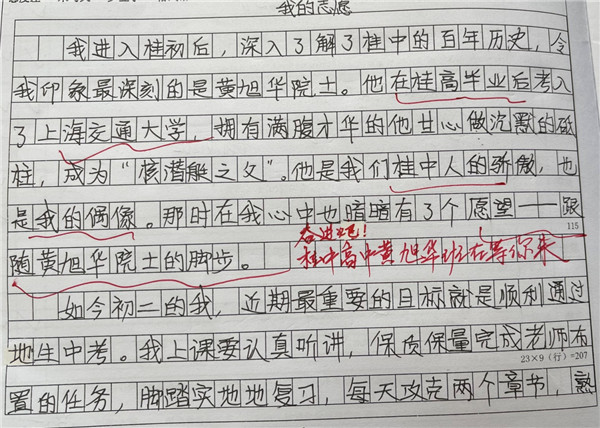 我的志愿
我进入桂初后，深入了解了桂中的百年历史，令
我印象最深刻的是黄旭华院士。他在桂高毕业后考入
了上海交通大学，拥有满腹才华的他甘心做沉默的砥
柱，成为“核潜艇之父”。他是我们桂中人的骄傲，也
是我的偶像。那时在我心中也暗暗有了个愿望——跟
115
奋进吧！
随黄旭华院士的脚步。桂中高中黄旭华班在等你来
如今初二的我，近期最重要的目标就是顺利通过
地生中考。我上课要认真听讲，保质保量完成老师布
23×9（行）=207
置的任务，脚踏实地地复习，每天攻克两个章节，熟